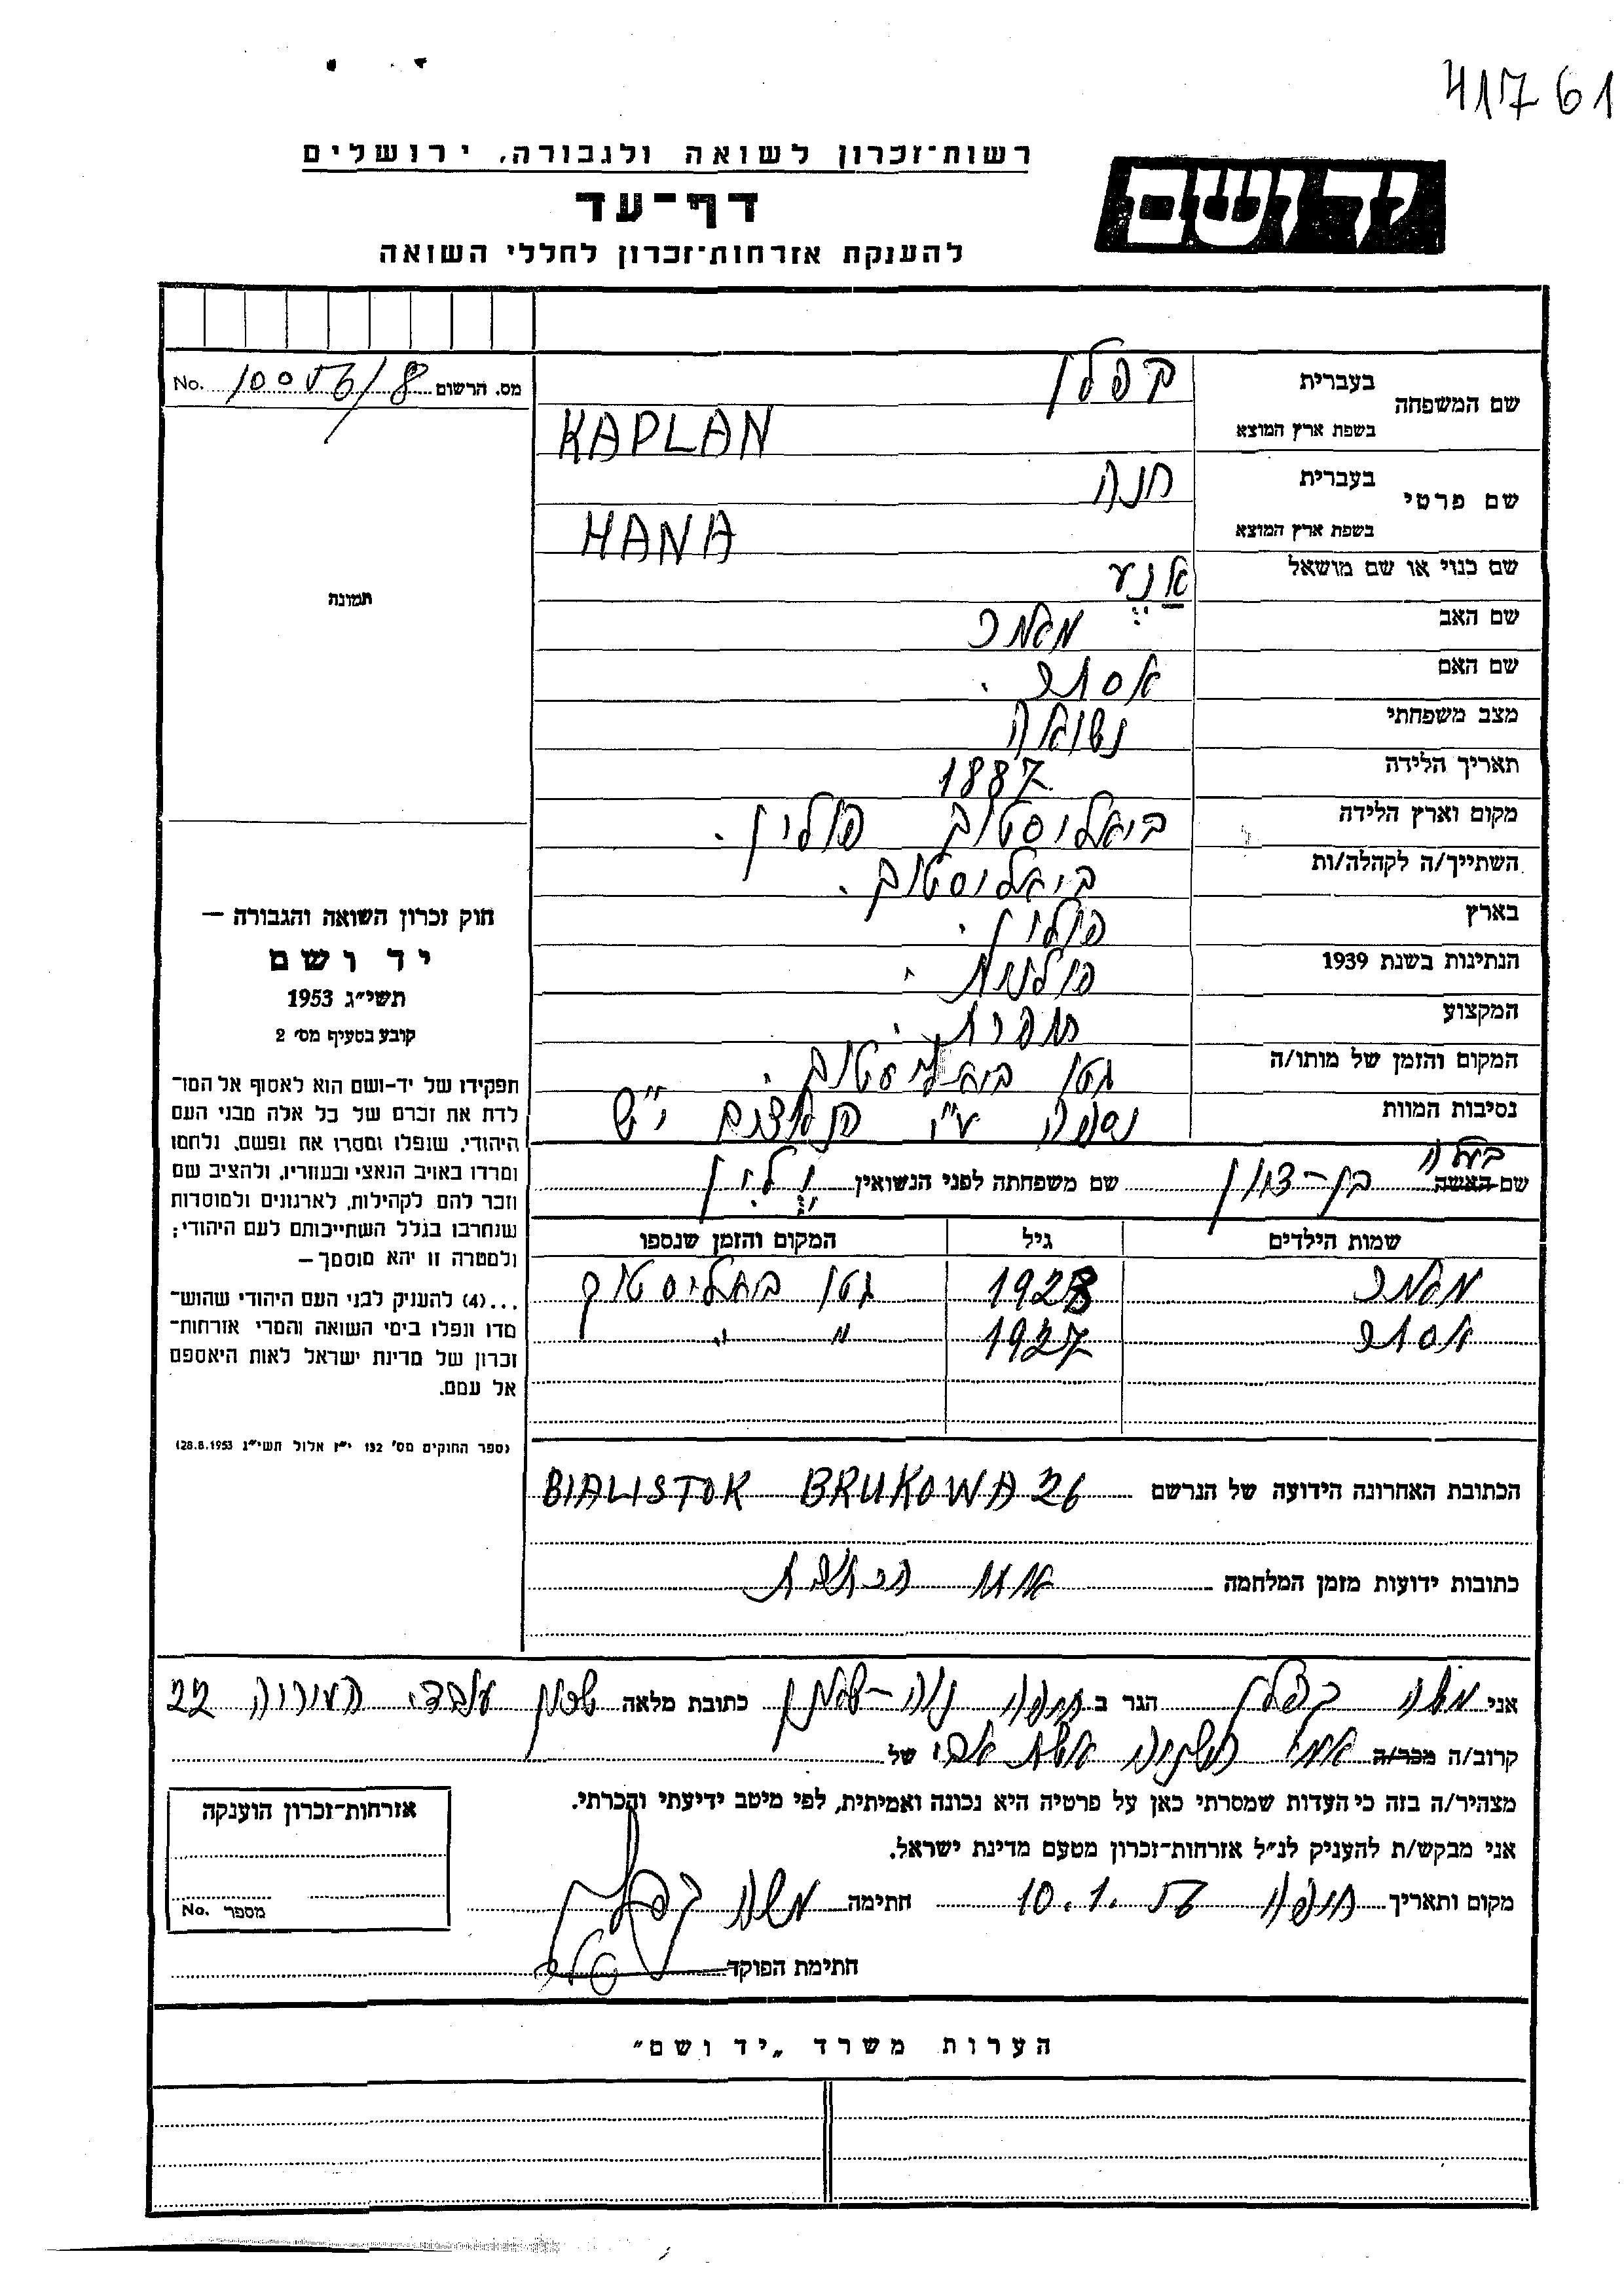 41761
רשות־זכרון לשואה ולגבורה, ירושלים
יד ושם
דף־עד
להענקת אזרחות־זכרון לחללי השואה
מס. הרשום 8/ No.
שם המשפחה
בעברית קפלן
בשפת ארץ המוצא KAPLAN
שם פרטי
בעברית חנה
בשפת ארץ המוצא HANA
תמונה
שם כנוי או שם מושאל
שם האב
שם האם אסתר.
מצב משפחתי נשואה
תאריך הלידה 1887
מקום וארץ הלידה ביאליסטוק פולין.
השתייך/ה לקהלה/ות ביאליסטוק.
בארץ פולין.
הנתינות בשנת 1939 פולנית.
המקצוע תופרת.
המקום והזמן של מותו/ה גטו ביאליסטוק.
נסיבות המוות נספתה ע"י הנאצים י"ש
חוק זכרון השואה והגבורה —
יד ושם
תשי״ג 1953
קובע בסעיף מס׳ 2
תפקידו של יד-ושם הוא לאסוף אל המו־
לדת את זכרם של כל אלה מבני העם
היהודי, שנפלו ומסרו את נפשם, נלחמו
ומרדו באויב הנאצי ובעוזריו, ולהציב שם
וזכר להם לקהילות, לארגונים ולמוסדות
שנחרבו בגלל השתייכותם לעם היהודי;
ולמטרה זו יהא מוסמך—
...(4) להעניק לבני העם היהודי שהוש־
מדו ונפלו בימי השואה והמרי אזרחות־
זכרון של מדינת ישראל לאות היאספם
אל עמם.
(ספר החוקים מס׳ 132 י״ז אלול תשי״ג 28.8.1953)
בעלה
שם האשה בן-ציון שם משפחתה לפני הנשואין
שמות הילדים גיל המקום והזמן שנספו
1928 גטו ביאליסטוק
אסתר 1927 " "
הכתובת האחרונה הידועה של הנרשם BIALISTOK BRUKOWA 26
כתובות ידועות מזמן המלחמה אותו הכתובת
אני משה קפלן הגר ב חיפה נוה-שאנן כתובת מלאה שכון עובדי העיריה 22
קרוב/ה מכר/ה אשת אבי של
מצהיר/ה בזה כי העדות שמסרתי כאן על פרטיה היא נכונה ואמיתית, לפי מיטב ידיעתי והכרתי.
אני מבקש/ת להעניק לנ״ל אזרחות־זכרון מטעם מדינת ישראל.
מקום ותאריך חיפה 10.1. חתימה משה קפלן
חתימת הפוקד
אזרחות־זכרון הוענקה
מספר No.
הערות משרד „יד ושם״